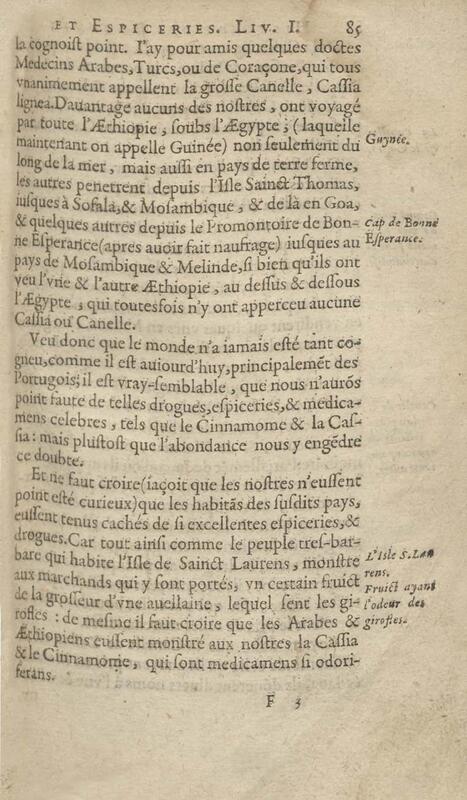 ET ESPICERIES. LIV. I. 85
la cognoist point. I'ay pour amis quelques doctes
Medecins Arabes, Turcs, ou de Coraçone, qui tous
vnanimement appellent la grosse Canelle, Cassia
lignea. Dauantage aucuns des nostres, ont voyagé
par toute l'Æthiopie, soubs l'Ægypte, (laquelle
maintenant on appelle Guinée) non seulement du
Guynée.
long de la mer, mais aussi en pays de terre ferme,
les autres penetrent depuis l'Isle Sainct Thomas,
iusques à Sofala, & Mosambique, & de là en Goa,
& quelques autres depuis le Promontoire de Bon-
Cap de Bonne
ne Esperance (apres auoir fait naufrage) iusques au
Esperance.
pays de Mosambique & Melinde, si bien qu'ils ont
veu l'vne & l'autre Æthiopie, au dessus & dessous
l'Ægypte, qui toutesfois n'y ont apperceu aucune
Cassia ou Canelle.
Veu donc que le monde n'a iamais esté tant co-
gneu, comme il est auiourd'huy, principalemẽt des
Portugois; il est vray-semblable, que nous n'aurõs
point faute de telles drogues, espiceries, & medica-
mens celebres, tels que le Cinnamome & la Cas-
sia: mais plustost que l'abondance nous y engẽdre
ce doubte.
Et ne faut croire (iaçoit que les nostres n'eussent
point esté curieux) que les habitãs des susdits pays,
eussent tenus cachés de si excellentes espiceries, &
drogues. Car tout ainsi comme le peuple tres-bar-
bare qui habite l'Isle de Sainct Laurens, monstre
L'Isle S. Lau
rens.
aux marchands qui y sont portés, vn certain fruict
Fruict ayant
de la grosseur d'vne auellaine, lequel sent les gi-
l'odeur des
rofles: de mesme il faut croire que les Arabes &
girofles.
Æthiopiens eussent monstré aux nostres la Cassia
& le Cinnamome, qui sont medicamens si odori-
ferans.
F 3